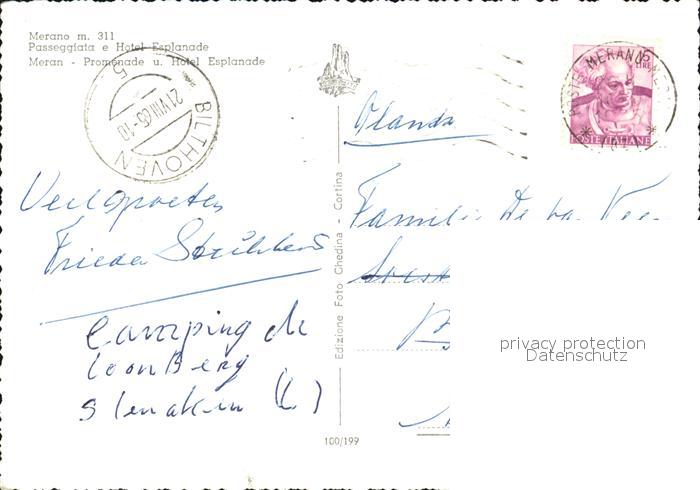 Merano m. 311
Passeggiata e Hotel Esplanade
Meran - Promenade u. Hotel Esplanade
BILTHOVEN
21 VIII 65-10
5
MERANO
5
LIRE
POSTE ITALIANE
Olanda
Veel groeten
Frieda
Familie de
Camping de
loonberg
(L)
Edizione Foto Ghedina - Cortina
100/199
privacy protection
Datenschutz